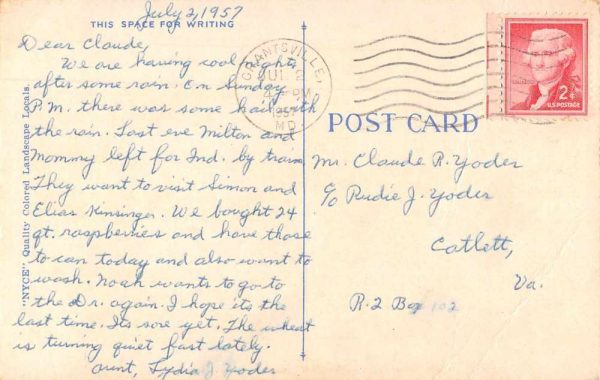 July 2, 1957
THIS SPACE FOR WRITING
Dear Claude,
We are having cool nights
after some rain. En Sunday
P.M. there was some hail with
the rain. Last eve Milton and
Mommy left for Ind. by train
They want to visit Simon and
Elias Kinsinger. We bought 24
qt. raspberries and have those
to can today and also want to
wash. Noah wants to go to
the Dr. again. I hope its the
last time. Its sore yet. The wheat
is turning quiet fast lately.
Aunt, Lydia J. Yoder
"NYCE" Quality Colored Landscape Locals.
GRANTSVILLE,
JUL 2
4 PM
1957
MD.
2¢
U.S. POSTAGE
POST CARD
Mr. Claude R. Yoder
c/o Rudie J. Yoder
Catlett,
Va.
R.2 Box 102